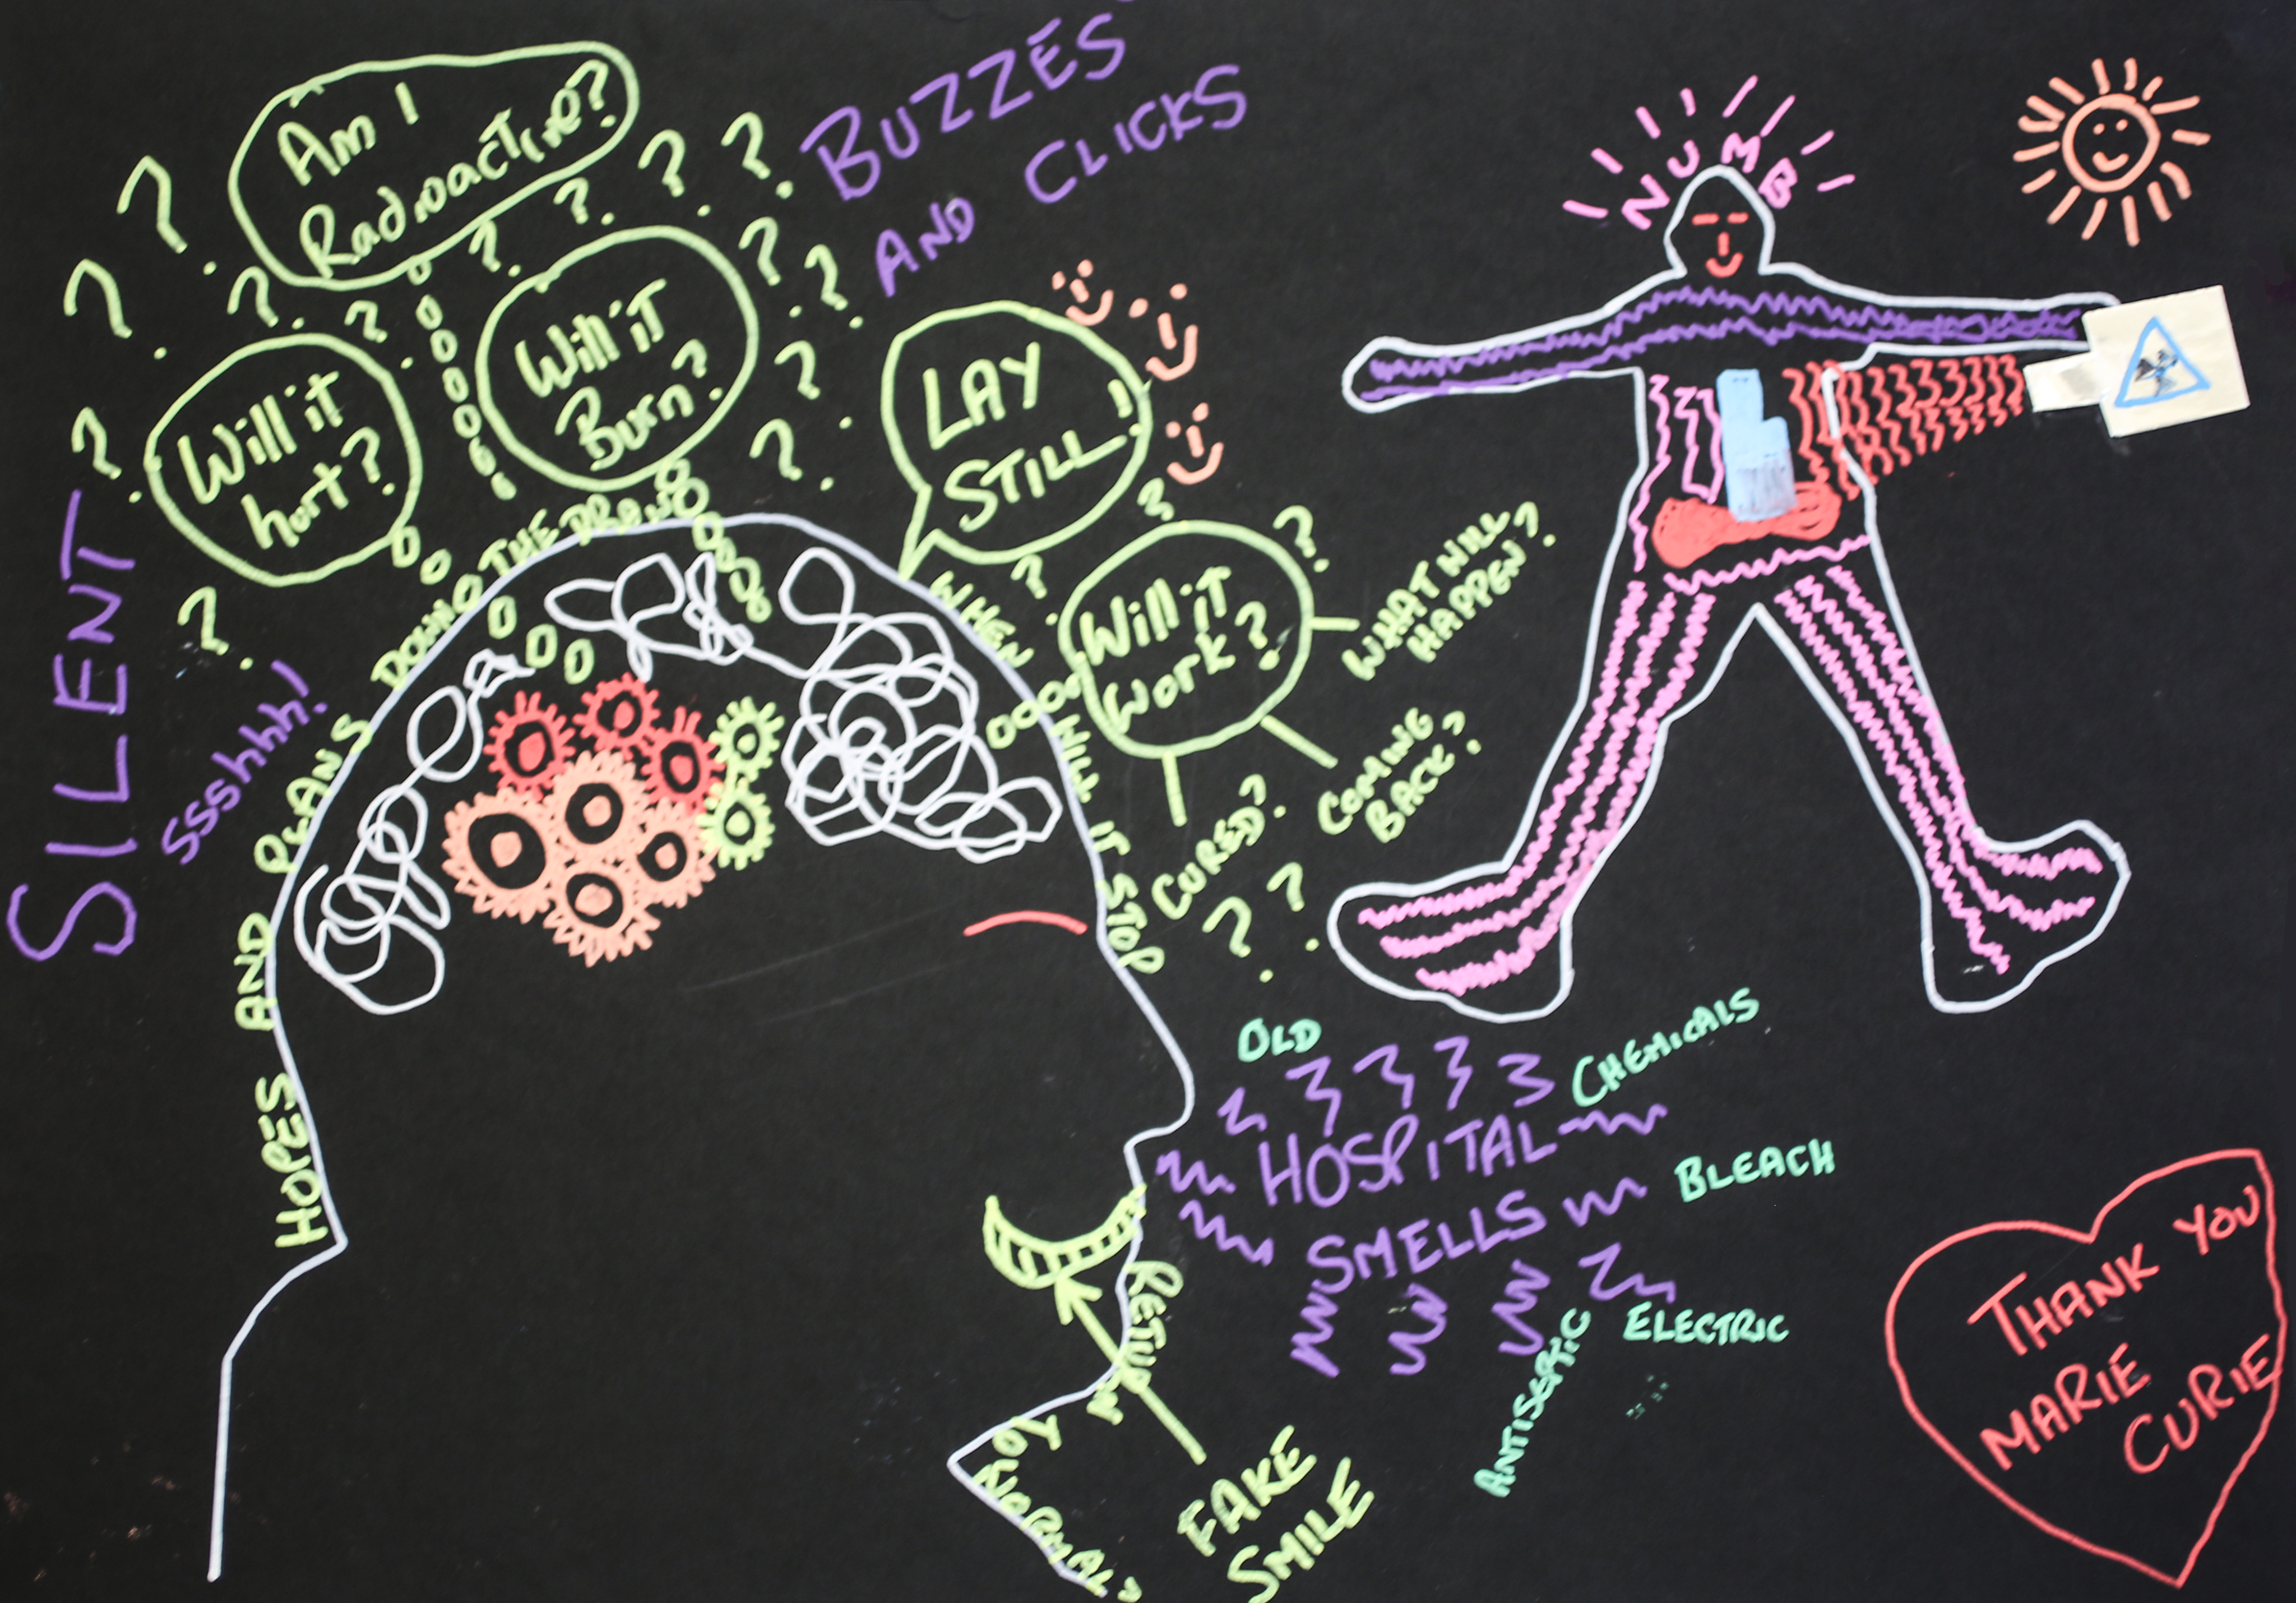 Am I
Radioactive?
BUZZES
AND CLICKS
Will it
hurt?
Will it
Burn?
LAY
STILL!
Will it
Work?
WHAT WILL
HAPPEN?
COMING
BACK?
CURED?
SILENT
ssshhh!
HOPES AND PLANS DOWN THE DRAIN
WHEN WILL IT STOP
RETURN
TO
NORMAL?
FAKE
SMILE
OLD
CHEMICALS
HOSPITAL
SMELLS
BLEACH
ELECTRIC
ANTISEPTIC
NUMB
THANK YOU
MARIE
CURIE